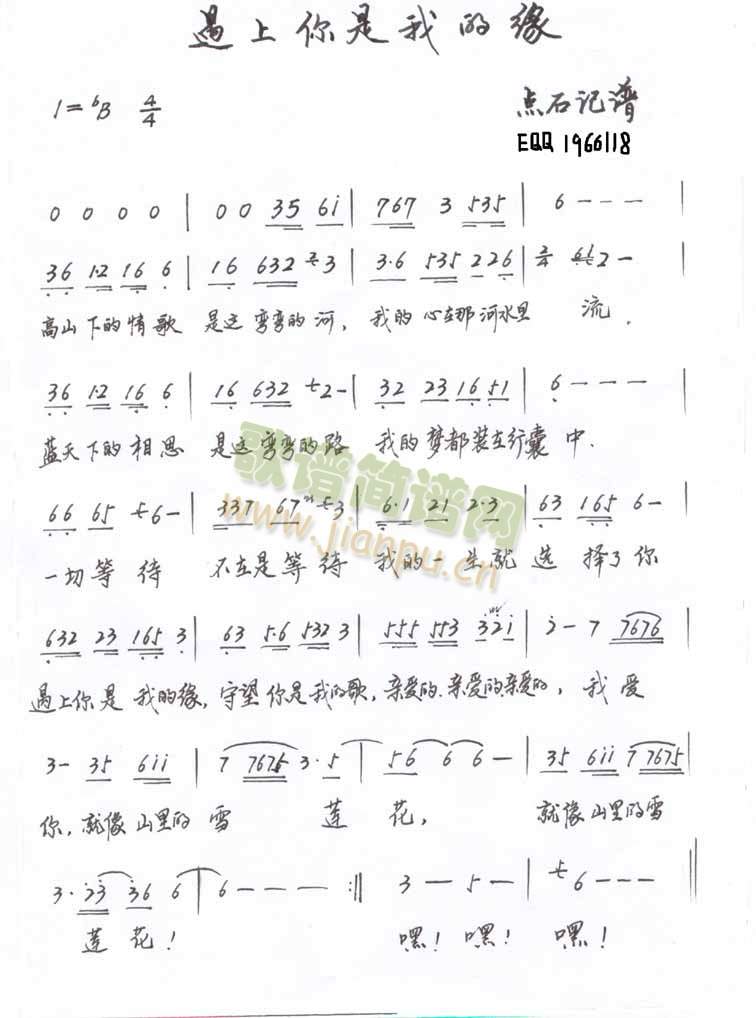 遇上你是我的缘
1=ᵇB 4/4
点石记谱
EQQ 1966118
0 0 0 0 | 0 0 35 6i | 767 3 535 | 6 - - - |
36 1·2 16 6 | 16 632 3 | 3·6 535 226 | 2/4 2 - |
高山下的情歌 是这弯弯的河, 我的心在那河水里 流.
36 1·2 16 6 | 16 632 2 - | 32 23 16 51 | 6 - - - |
蓝天下的相思 是这弯弯的路 我的梦都装在行囊中.
歌谱简谱网
www.jianpu.cn
66 65 6 - | 337 67 3 | 6·1 21 2·3 | 63 165 6 -
一切等待 不在是等待 我的一生就选择了你
632 23 165 3 | 63 5·6 532 3 | 555 553 32i | 2 - 7 7676 |
遇上你是我的缘, 守望你是我的歌, 亲爱的.亲爱的亲爱的, 我爱
3 - 35 6ii | 7 7675 3·5 | 56 6 6 - | 35 6ii 7 7675 |
你, 就像山里的雪 莲花, 就像山里的雪
3·23 36 6 | 6 - - - :|| 3 - 5 - | 6 - - - ||
莲花! 嘿! 嘿! 嘿!